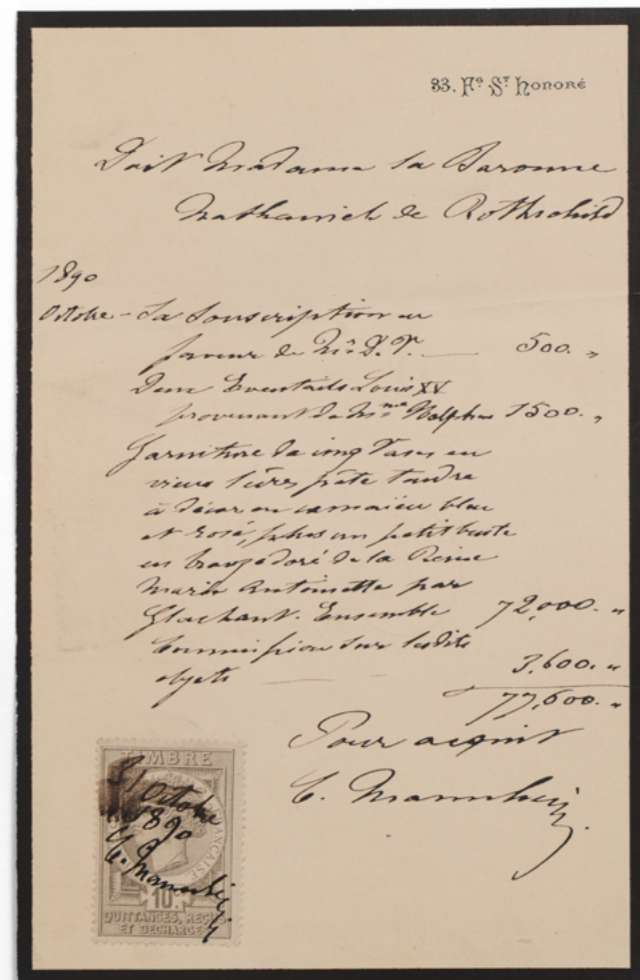 33. Fg St Honoré
Doit Madame la Baronne
Nathaniel de Rothschild
1890
Octobre - Sa Souscription en
faveur de Mr D. P. 500. "
Deux Eventails Louis XV
provenant de Mme Wolphe 1500. "
Garniture de cinq Vases en
vieux Sèvres pâte tendre
à décor en camaïeu bleu
et rosé, plus un petit buste
en bronze doré de la Reine
Marie Antoinette par
Ensemble 72,000. "
Commission sur lesdits
objets 3,600. "
77,600. "
Pour acquit
C. Mannheim
TIMBRE
31 Octobre
1890
C. Mannheim
FRANÇAISE
10c
QUITTANCES, REÇUS
ET DÉCHARGES